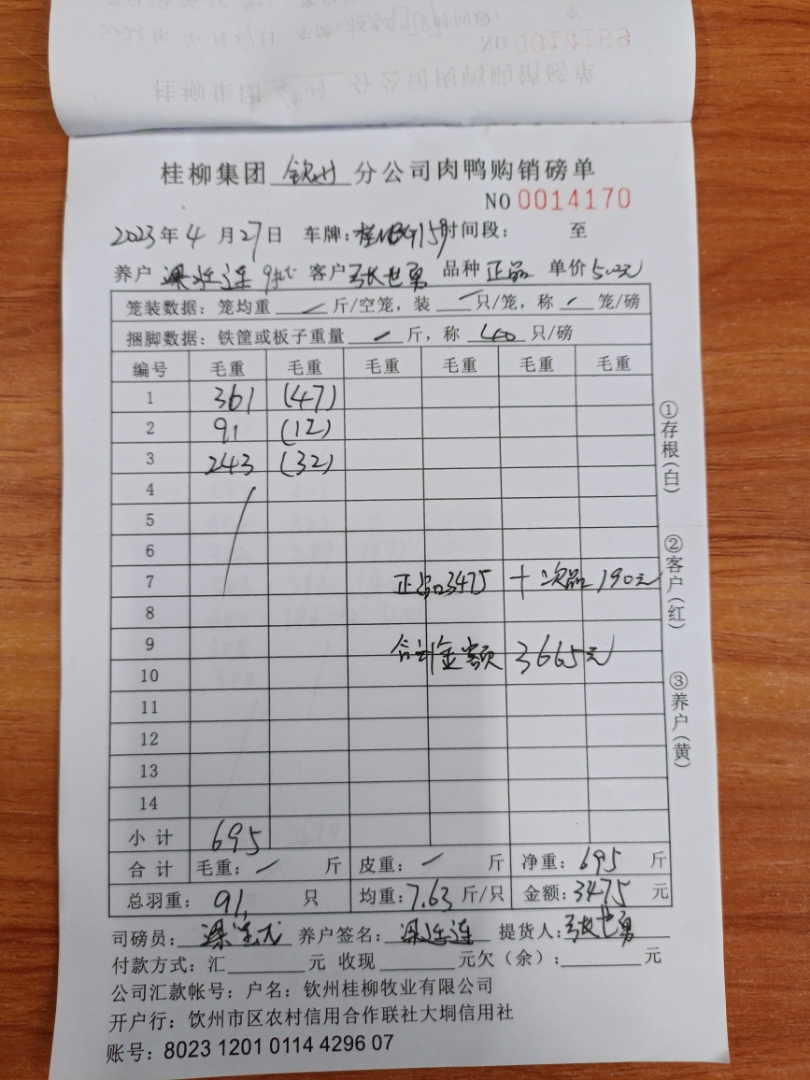 桂柳集团 钦州 分公司肉鸭购销磅单
NO 0014170
2023年4月27日 车牌: 时间段: 至
养户 梁连连 9批 客户 张世勇 品种 正品 单价 5.00元
笼装数据:笼均重 / 斤/空笼,装 / 只/笼,称 / 笼/磅
捆脚数据:铁筐或板子重量 / 斤,称 只/磅
编号 毛重 毛重 毛重 毛重 毛重 毛重
1 361 (47)
2 91 (12)
3 243 (32)
4
5
6
7 正品3475 + 次品190元
8
9 合计金额 3665元
10
11
12
13
14
小计 695
合计 毛重: / 斤 皮重: / 斤 净重: 695 斤
总羽重: 91 只 均重: 7.63 斤/只 金额: 3475 元
司磅员: 养户签名: 梁连连 提货人: 张世勇
付款方式:汇 元 收现 元欠(余): 元
公司汇款帐号:户名:钦州桂柳牧业有限公司
开户行:饮州市区农村信用合作联社大垌信用社
账号:8023 1201 0114 4296 07
①存根(白)
②客户(红)
③养户(黄)